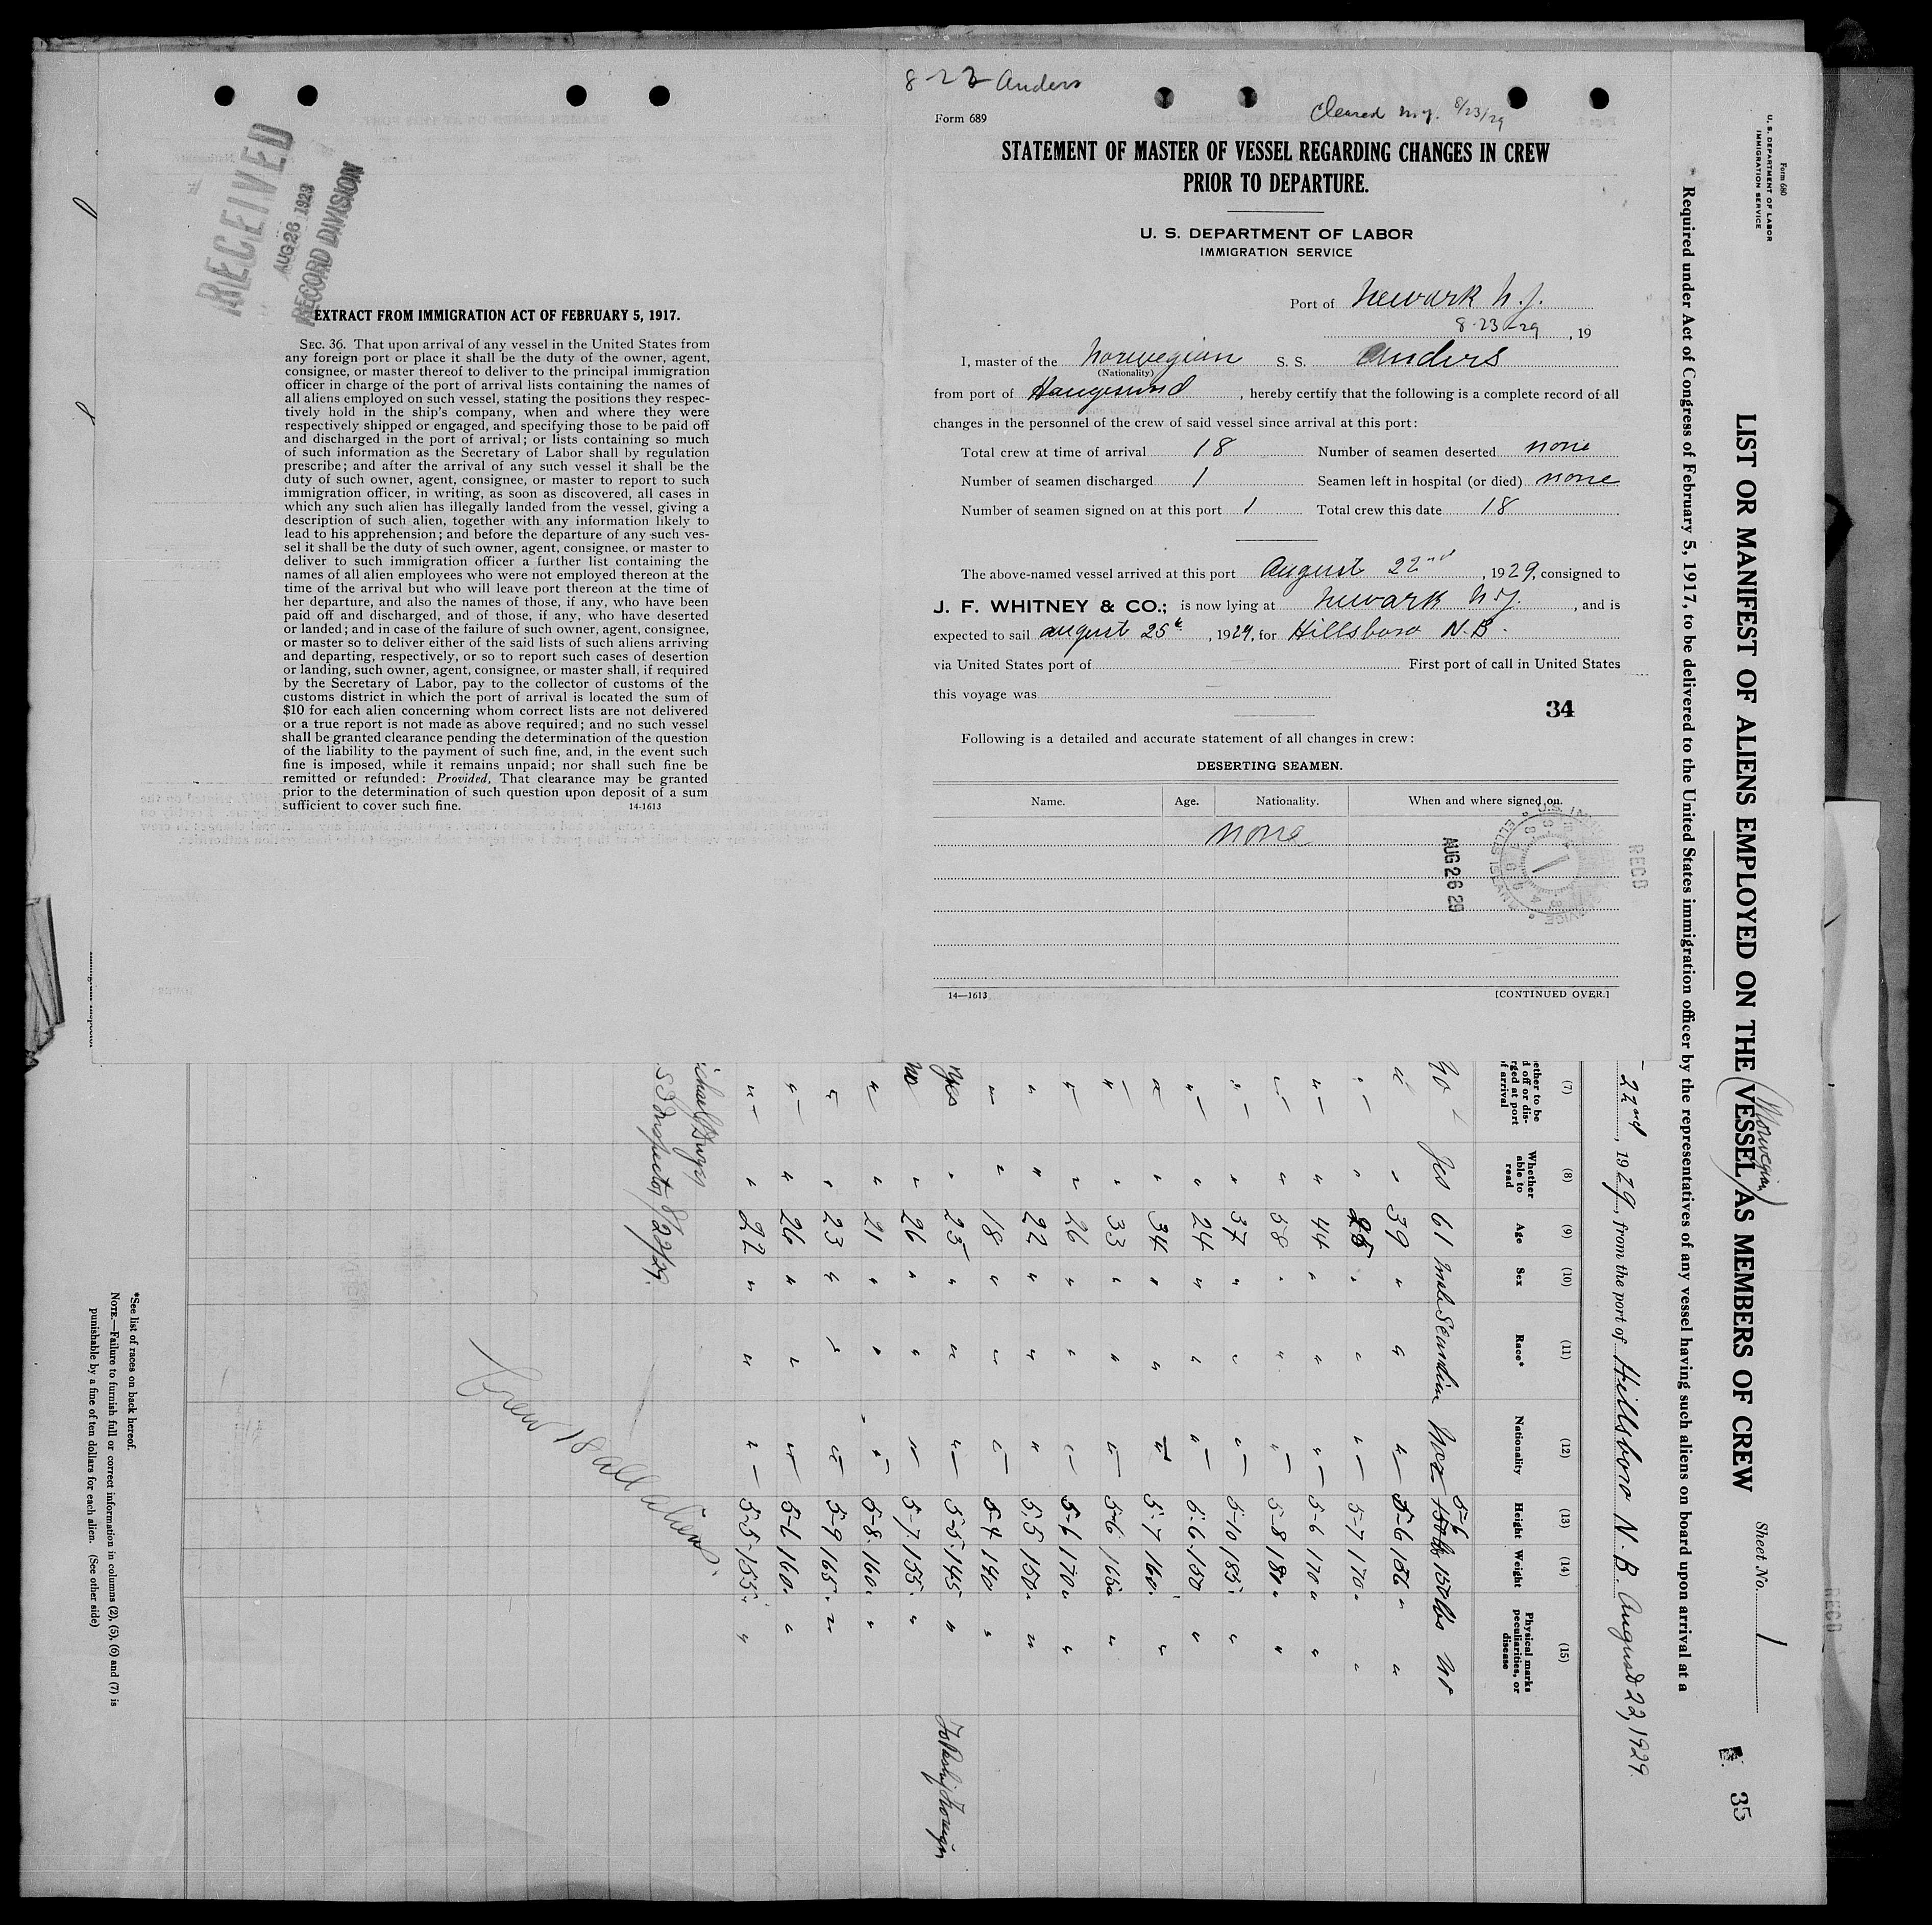 8-23 Anders
Cleared N.Y. 8/23/29
Form 689
STATEMENT OF MASTER OF VESSEL REGARDING CHANGES IN CREW
PRIOR TO DEPARTURE.
U. S. DEPARTMENT OF LABOR
IMMIGRATION SERVICE
Port of Newark N.J.
8-23-29, 19
I, master of the Norwegian S. S. Anders
(Nationality)
from port of Haugesund, hereby certify that the following is a complete record of all
changes in the personnel of the crew of said vessel since arrival at this port:
Total crew at time of arrival 18 Number of seamen deserted none
Number of seamen discharged 1 Seamen left in hospital (or died) none
Number of seamen signed on at this port 1 Total crew this date 18
The above-named vessel arrived at this port August 22nd, 1929, consigned to
J. F. WHITNEY & CO.; is now lying at Newark N.J., and is
expected to sail august 25th, 1929, for Hillsboro N.B.
via United States port of First port of call in United States
this voyage was
34
Following is a detailed and accurate statement of all changes in crew:
DESERTING SEAMEN.
Name. Age. Nationality. When and where signed on.
none
AUG 26 29
RECD
14—1613 [CONTINUED OVER.]
RECEIVED
AUG 26 1929
RECORD DIVISION
EXTRACT FROM IMMIGRATION ACT OF FEBRUARY 5, 1917.
SEC. 36. That upon arrival of any vessel in the United States from
any foreign port or place it shall be the duty of the owner, agent,
consignee, or master thereof to deliver to the principal immigration
officer in charge of the port of arrival lists containing the names of
all aliens employed on such vessel, stating the positions they respec-
tively hold in the ship's company, when and where they were
respectively shipped or engaged, and specifying those to be paid off
and discharged in the port of arrival; or lists containing so much
of such information as the Secretary of Labor shall by regulation
prescribe; and after the arrival of any such vessel it shall be the
duty of such owner, agent, consignee, or master to report to such
immigration officer, in writing, as soon as discovered, all cases in
which any such alien has illegally landed from the vessel, giving a
description of such alien, together with any information likely to
lead to his apprehension; and before the departure of any such ves-
sel it shall be the duty of such owner, agent, consignee, or master to
deliver to such immigration officer a further list containing the
names of all alien employees who were not employed thereon at the
time of the arrival but who will leave port thereon at the time of
her departure, and also the names of those, if any, who have been
paid off and discharged, and of those, if any, who have deserted
or landed; and in case of the failure of such owner, agent, consignee,
or master so to deliver either of the said lists of such aliens arriving
and departing, respectively, or so to report such cases of desertion
or landing, such owner, agent, consignee, or master shall, if required
by the Secretary of Labor, pay to the collector of customs of the
customs district in which the port of arrival is located the sum of
$10 for each alien concerning whom correct lists are not delivered
or a true report is not made as above required; and no such vessel
shall be granted clearance pending the determination of the question
of the liability to the payment of such fine, and, in the event such
fine is imposed, while it remains unpaid; nor shall such fine be
remitted or refunded: Provided, That clearance may be granted
prior to the determination of such question upon deposit of a sum
sufficient to cover such fine. 14-1613
Form 680
U. S. DEPARTMENT OF LABOR
IMMIGRATION SERVICE
Sheet No. 1
35
LIST OR MANIFEST OF ALIENS EMPLOYED ON THE VESSEL AS MEMBERS OF CREW
(Norwegian)
* Required under Act of Congress of February 5, 1917, to be delivered to the United States immigration officer by the representatives of any vessel having such aliens on board upon arrival at a
22nd, 1929, from the port of Hillsboro N.B. August 22, 1929
(7) (8) (9) (10) (11) (12) (13) (14) (15)
Whether able to read Age Sex Race* Nationality Height Weight Physical marks, peculiarities, or disease
No Yes 61 male Nor 5-6 150 lbs
" " 39 " " " 5-6 186 "
" " " " " 5-7 170 "
" " 44 " " " 5-6 170 "
" " 58 " " " 5-8 180 "
" " 37 " " " 5-10 185 "
" " 24 " " " 5-6 150 "
" " 34 " " " 5-7 160 "
" " 33 " " " 5-6 165 "
" " 26 " " " 5-6 170 "
" " 22 " " " 5-5 150 "
" " 18 " " " 5-4 140 "
Yes " 25 " " " 5-5 145 " To Reship Foreign
No " 26 " " " 5-7 155 "
" " 21 " " " 5-8 160 "
" " 23 " " " 5-9 165 "
" " 26 " " " 5-6 160 "
" " 22 " " " 5-5 155 "
Inspector 8/22/29
Crew 18 all aliens.
*See list of races on back hereof.
NOTE.—Failure to furnish full or correct information in columns (2), (5), (6) and (7) is
punishable by a fine of ten dollars for each alien. (See other side)